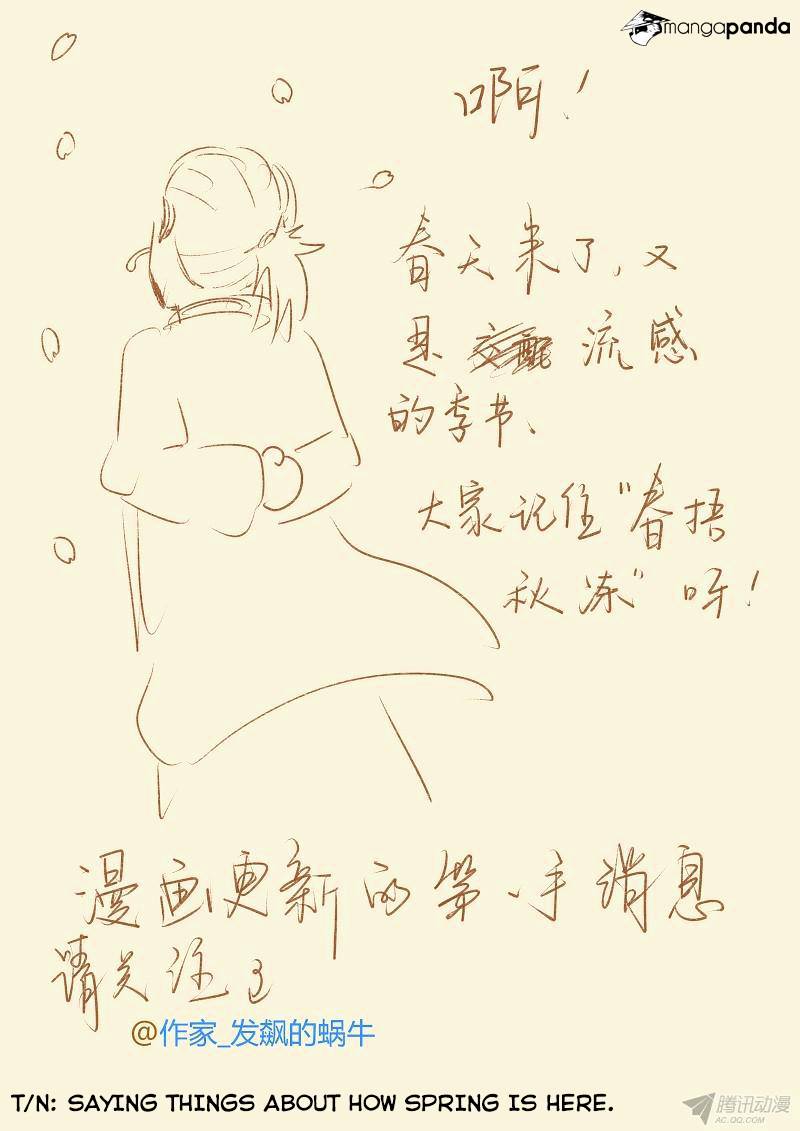 mangapanda
啊！
春天来了，又
是交配流感
的季节、
大家记住"春捂
秋冻"呀！
漫画更新的第一手消息
请关注
@作家_发飙的蜗牛
T/N: SAYING THINGS ABOUT HOW SPRING IS HERE.
腾讯动漫
AC.QQ.COM